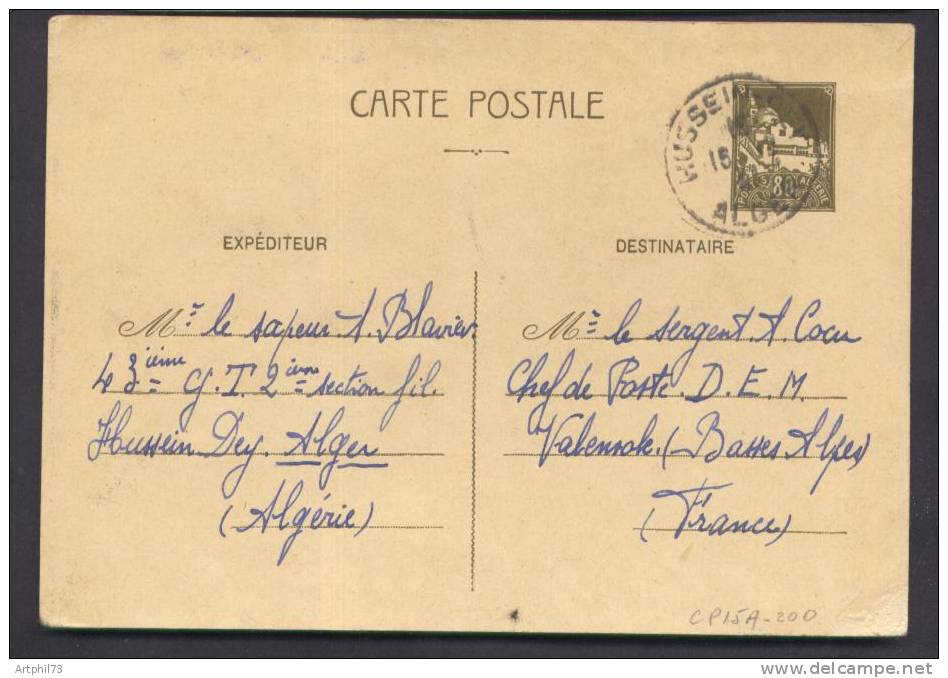 CARTE POSTALE
HUSSEIN
15
ALGER
POSTES 80 ALGERIE
EXPÉDITEUR
Mr le sapeur A. Blavier
43ième G.T. 2ième section fil.
Hussein Dey. Alger
(Algérie)
DESTINATAIRE
Mr le sergent A Cocu
Chef de Poste. D.E.M.
Valensole. (Basses Alpes)
(France)
CP15A-200
Artphil73
delcampe.net